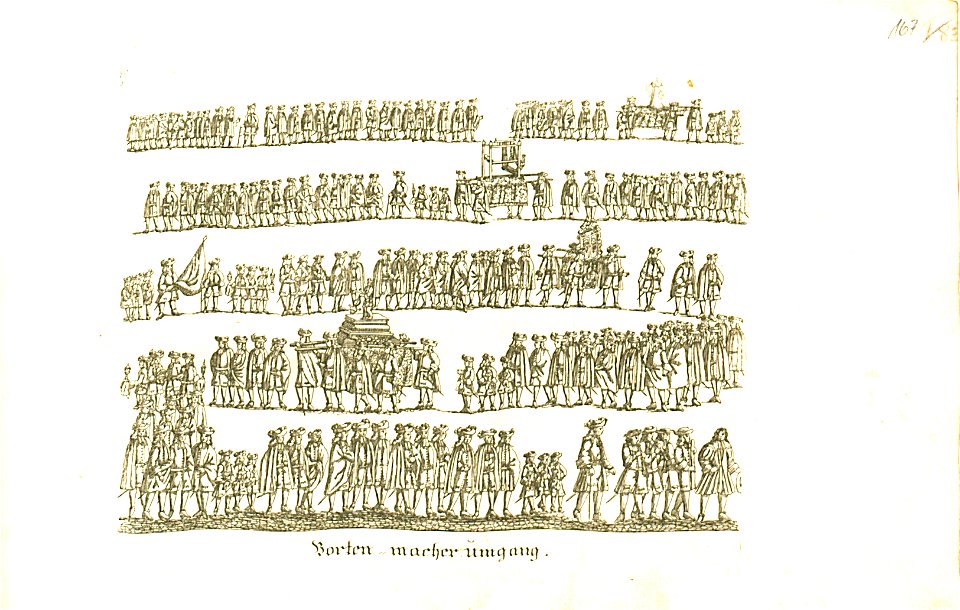 167
Vorten-macher ümgang.